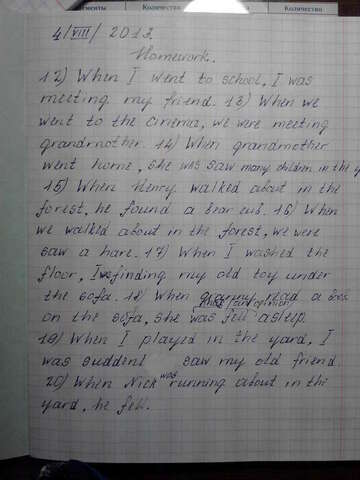 Количество
4/VIII/2013
Homework.
12) When I went to school, I was
meeting my friend. 13) When we
went to the cinema, we were meeting
grandmother. 14) When grandmother
went home, she was saw many children in the y
15) When Henry walked about in the
forest, he found a bear cub. 16) When
we walked about in the forest, we were
saw a hare. 17) When I washed the
floor, I was finding my old toy under
the sofa. 18) When granny read a book
on the sofa, she was fell asleep.
19) When I played in the yard, I
was suddenl saw my old friend.
20) When Nick was running about in the
yard, he fell.